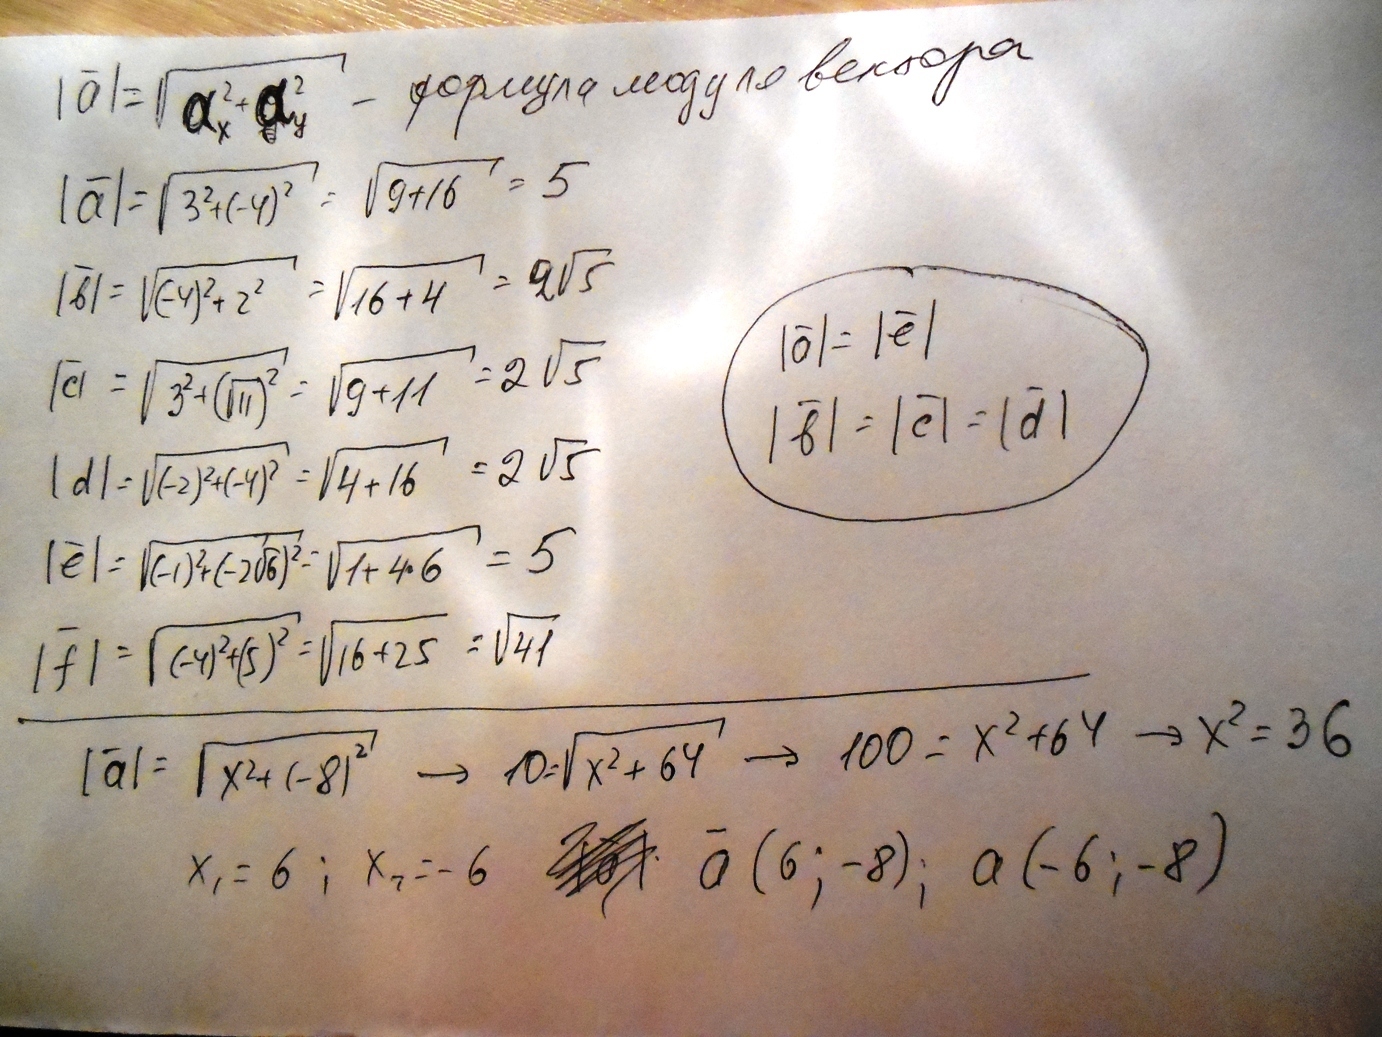 |ā| = √(aₓ² + a_y²) – формула модуля вектора
|ā| = √(3²+(-4)²) = √(9+16) = 5
|b̄| = √((-4)²+2²) = √(16+4) = 2√5
|c̄| = √(3²+(√11)²) = √(9+11) = 2√5
|d| = √((-2)²+(-4)²) = √(4+16) = 2√5
|ē| = √((-1)²+(-2√6)²) = √(1+4·6) = 5
|f̄| = √((-4)²+(5)²) = √(16+25) = √41
|ā| = |ē|
|b̄| = |c̄| = |d̄|
|ā| = √(x²+(-8)²) → 10=√(x²+64) → 100 = x²+64 → x² = 36
x₁ = 6 ; x₂ = -6 ā (6 ; -8) ; a (-6 ; -8)